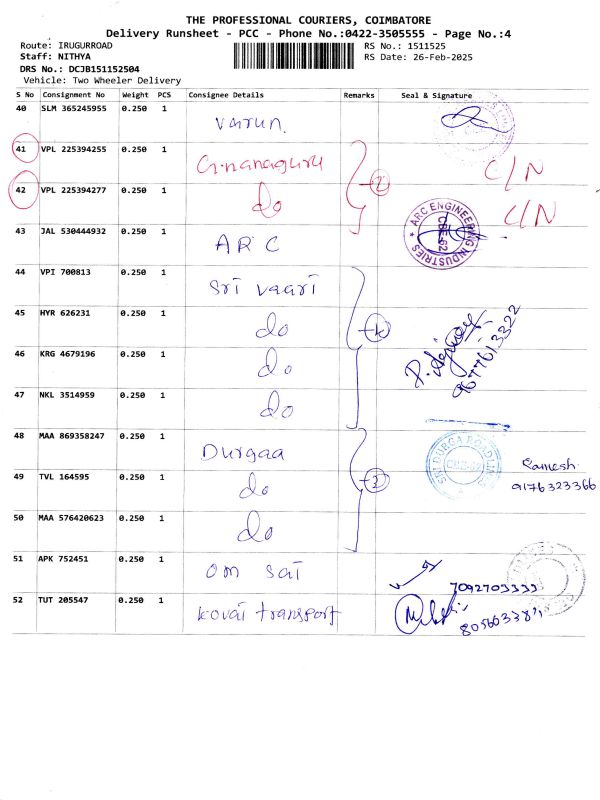 THE PROFESSIONAL COURIERS, COIMBATORE
Delivery Runsheet - PCC - Phone No.:0422-3505555 - Page No.:4
Route: IRUGURROAD
RS No.: 1511525
Staff: NITHYA
RS Date: 26-Feb-2025
DRS No.: DCJB151152504
Vehicle: Two Wheeler Delivery
S No Consignment No Weight PCS Consignee Details Remarks Seal & Signature
40 SLM 365245955 0.250 1 Varun
41 VPL 225394255 0.250 1 Gnanaguru C/N
42 VPL 225394277 0.250 1 do 2 C/N
43 JAL 530444932 0.250 1 ARC ARC ENGINEERING INDUSTRIES CBE-62
44 VPI 700813 0.250 1 Sri vaari
45 HYR 626231 0.250 1 do
46 KRG 4679196 0.250 1 do 9677613322
47 NKL 3514959 0.250 1 do
48 MAA 869358247 0.250 1 Durgaa SRI DURGA ROADLINES Ramesh
49 TVL 164595 0.250 1 do 3 9176323366
50 MAA 576420623 0.250 1 do
51 APK 752451 0.250 1 om sai 7092703333
52 TUT 205547 0.250 1 kovai transport